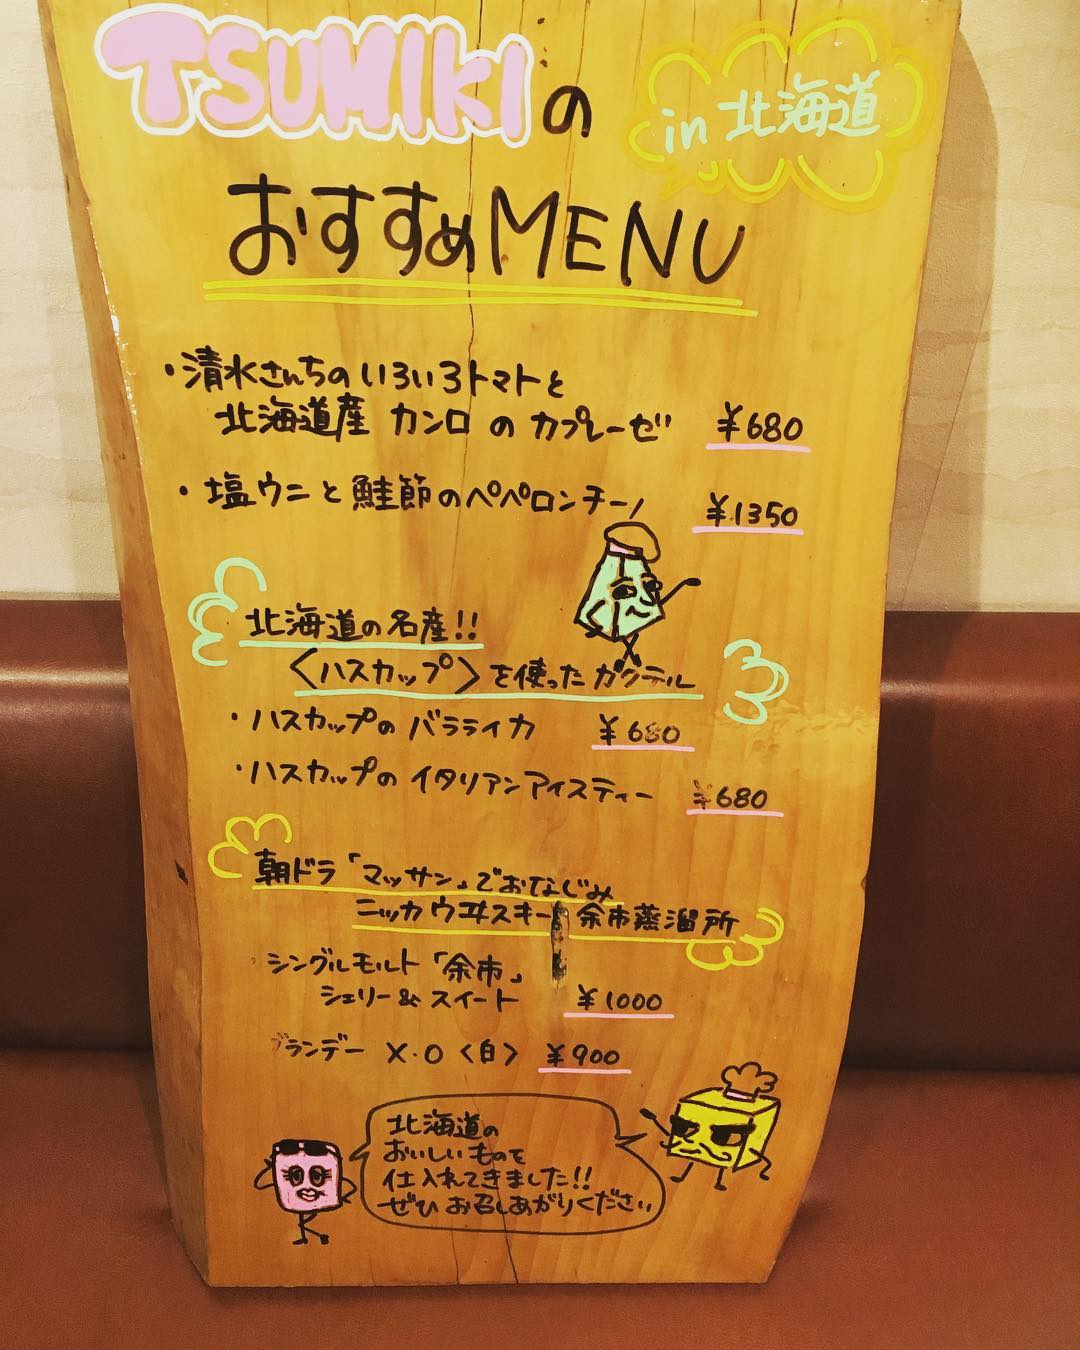 TSUMIKIの
in 北海道
おすすめMENU
・清水さんちのいろいろトマトと
北海道産 カンロ の カプレーゼ ¥680
・塩ウニと鮭節のペペロンチーノ ¥1350
北海道の名産!!
〈ハスカップ〉を使ったカクテル
・ハスカップの バラライカ ¥680
・ハスカップの イタリアンアイスティー ¥680
朝ドラ「マッサン」でおなじみ
ニッカウヰスキー 余市蒸溜所
シングルモルト「余市」
シェリー&スイート ¥1000
ブランデー X.O〈白〉 ¥900
北海道の
おいしいものを
仕入れてきました!!
ぜひ お召しあがりください